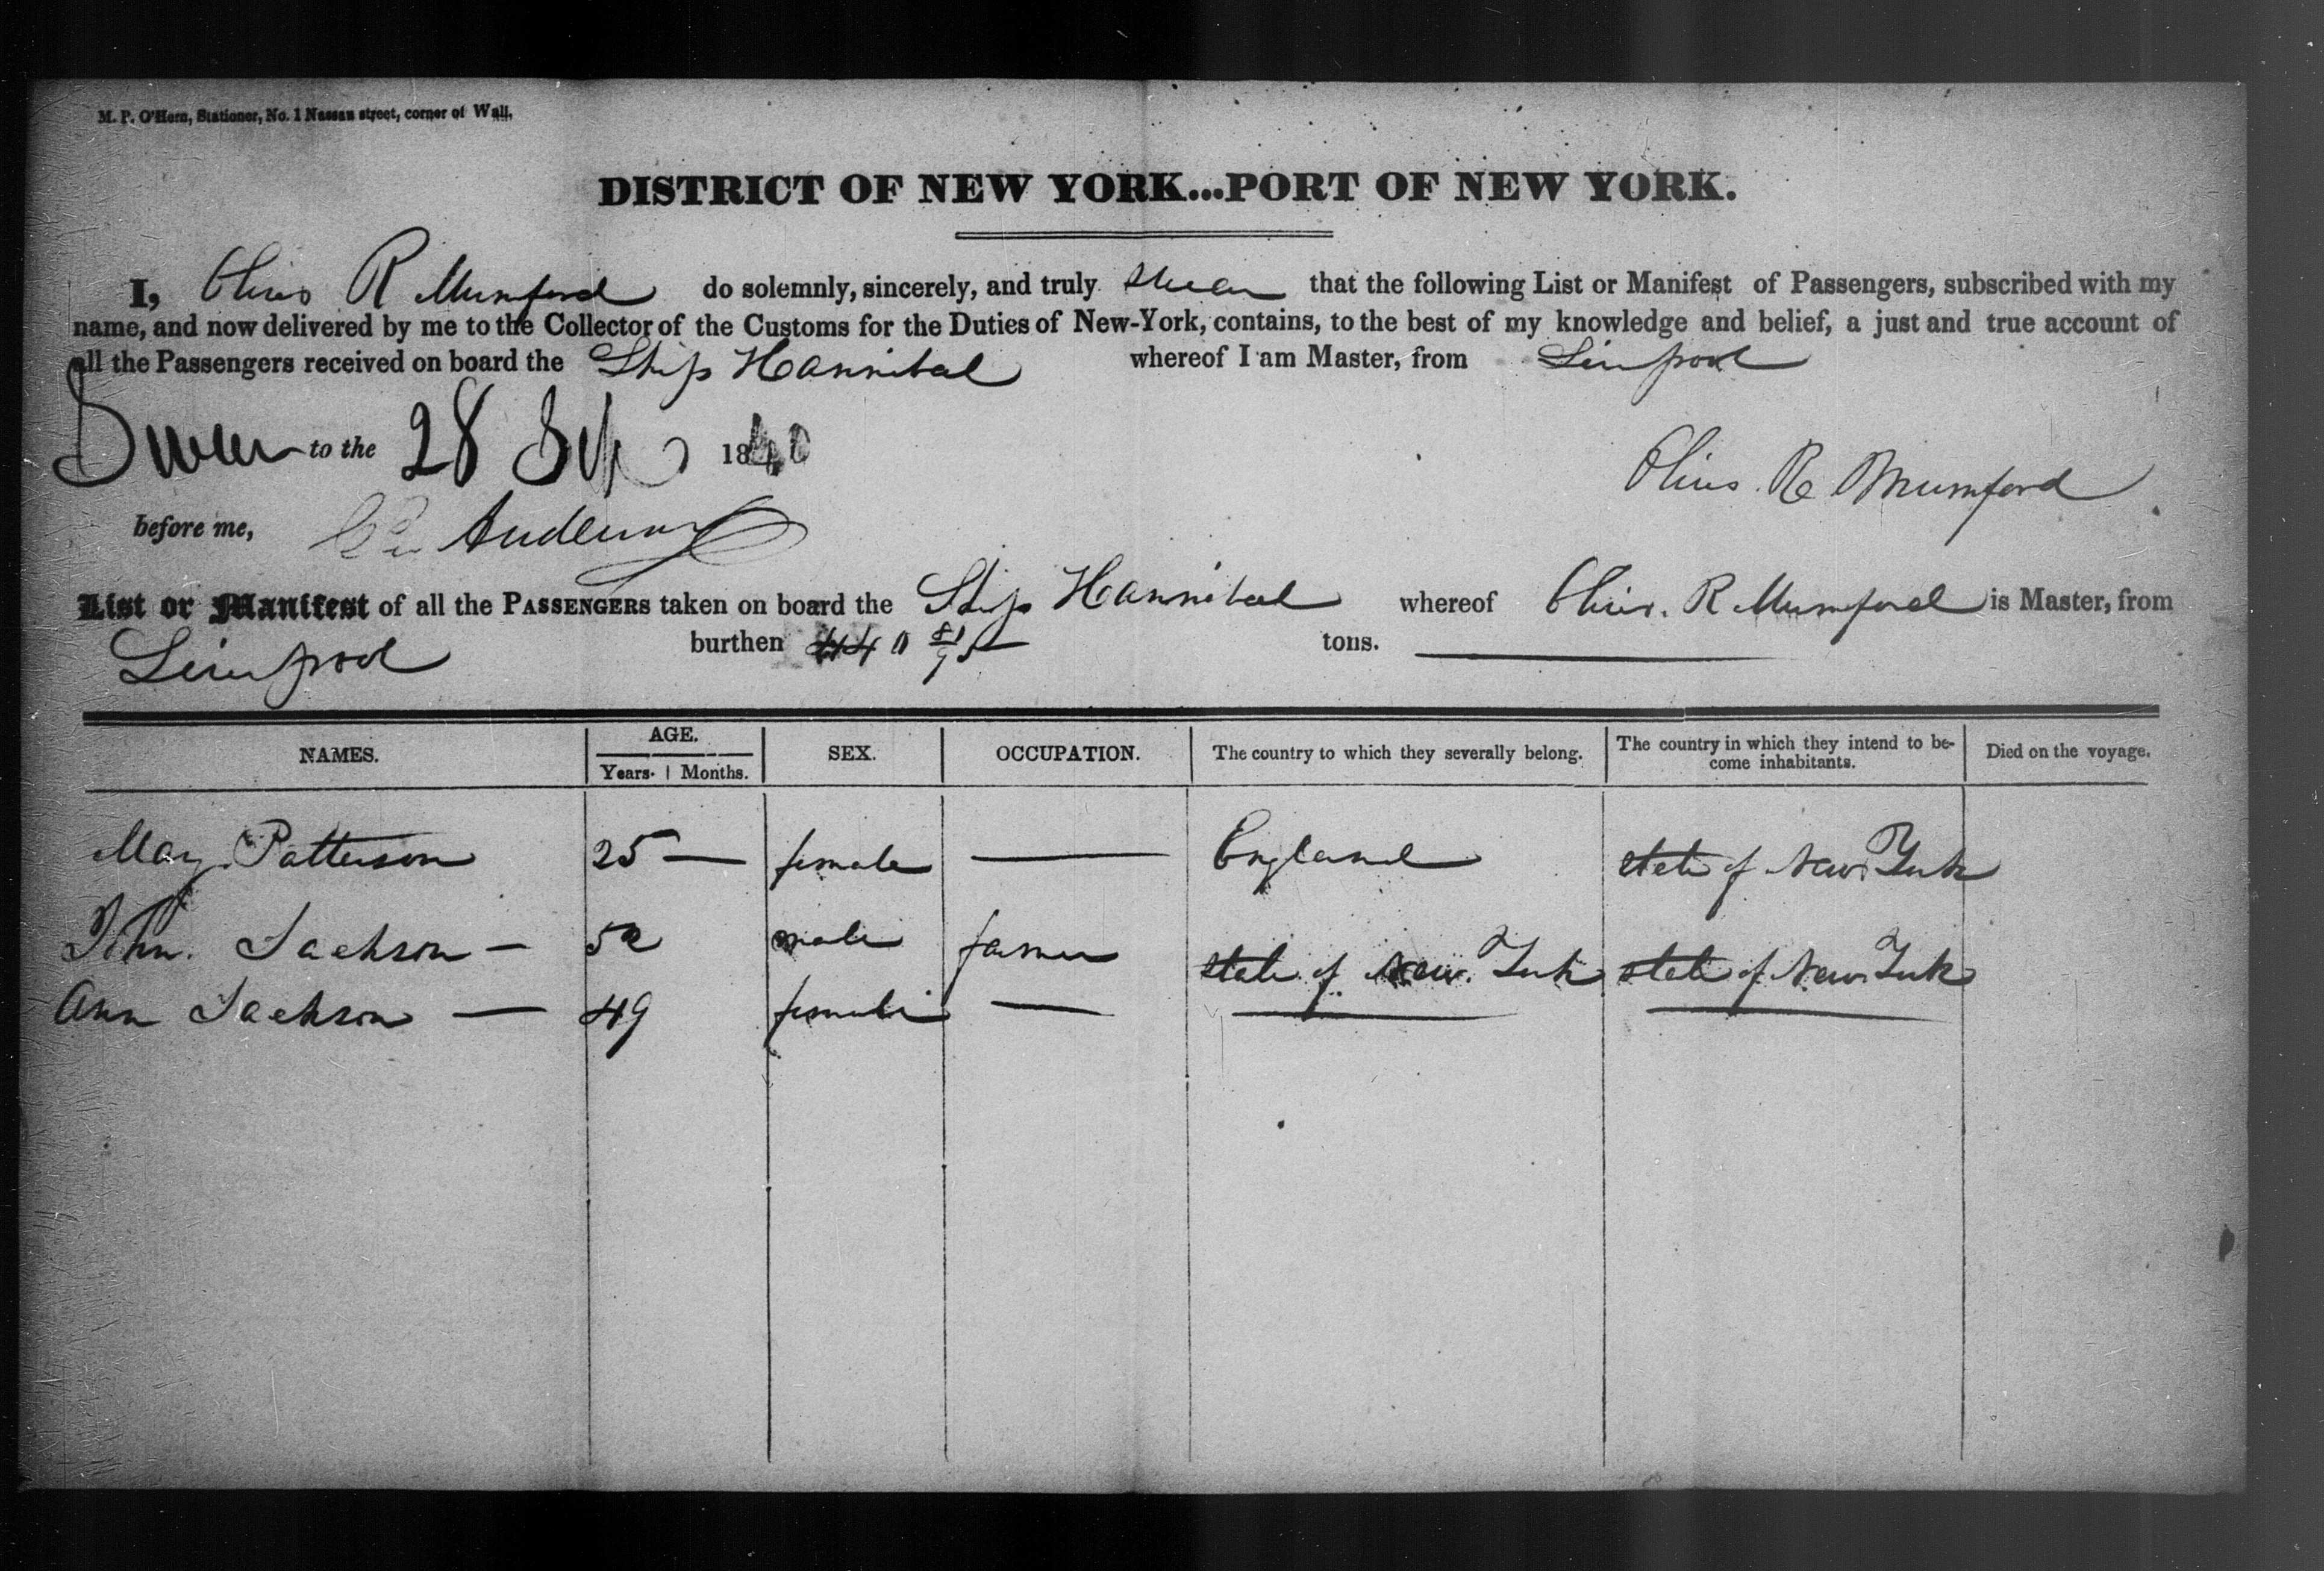 M. P. O'Hern, Stationer, No. 1 Nassau street, corner of Wall.
DISTRICT OF NEW YORK...PORT OF NEW YORK.
I, Oliver R Mumford do solemnly, sincerely, and truly swear that the following List or Manifest of Passengers, subscribed with my
name, and now delivered by me to the Collector of the Customs for the Duties of New-York, contains, to the best of my knowledge and belief, a just and true account of
all the Passengers received on board the Ship Hannibal whereof I am Master, from Liverpool
Sworn to the 28 Sep 1840
Oliver R Mumford
before me,
List or Manifest of all the PASSENGERS taken on board the Ship Hannibal whereof Oliver R Mumford is Master, from
Liverpool burthen 440 81/95 tons.
NAMES. AGE. Years. Months. SEX. OCCUPATION. The country to which they severally belong. The country in which they intend to become inhabitants. Died on the voyage.
Mary Patterson 25 — female — England state of New York
John. Jackson — 52 male farmer state of New York state of New York
Ann Jackson — 49 female —